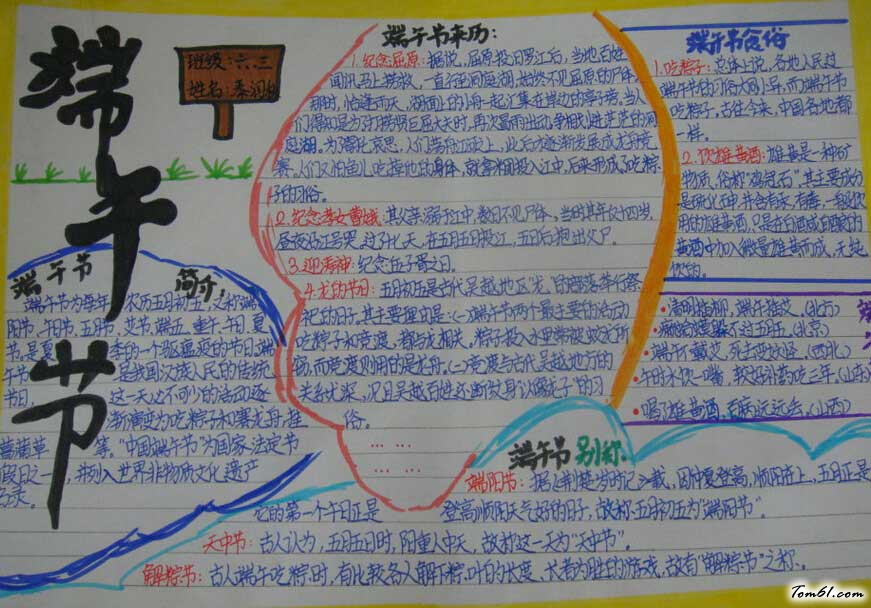 端午节
班级:六.三
姓名:秦
端午节简介:
端午节为每年农历五月初五,又称端
阳节、午日节、五月节、艾节、端五、重午、午日、夏
节,是夏季的一个驱瘟疫的节日,端
午节是我国汉族人民的传统
节日,这一天必不可少的活动逐
渐演变为吃粽子和赛龙舟,挂
菖蒲草等。“中国端午节”为国家法定节
假日之一,并列入世界非物质文化遗产
名录。
端午节来历:
1.纪念屈原:据说,屈原投汨罗江后,当地百姓
闻汛马上捞救,一直行到洞庭湖,始终不见屈原的尸体,
那时,恰逢雨天,湖面上的小舟一起汇集在岸边的亭子旁,当人
们得知是为了打捞贤臣屈大夫时,再次冒雨出动,争相划进茫茫的洞
庭湖,为寄托哀思,人们荡舟江河上,此后才逐渐发展成龙舟竞
赛,人们又怕鱼儿吃掉他的身体,就拿米团投入江中,后来形成了吃粽
子的习俗。
2.纪念孝女曹娥:其父亲溺于江中,数日不见尸体,当时其年仅十四岁,
昼夜沿江号哭,过了十七天,在五月五日投江,五日后抱出父尸。
3.迎涛神:纪念伍子胥之日。
4.龙的节日:五月初五是古代吴越地区“龙”的部落举行祭
祀的日子。其主要理由是:(一)端午节两个最主要的活动
吃粽子和竞渡,都与龙相关。粽子投入水里常被蛟龙所
窃,而竞渡则用的是龙舟。(二)竞渡与古代吴越地方的
关系尤深,况且吴越百姓还断纹身以“像龙子”的习
俗。
... ...
... ...
端午节食俗
1.吃粽子:总体上说,各地人民过
端午节的习俗大同小异,而端午节
吃粽子,古往今来,中国各地都
一样。
2.饮雄黄酒:雄黄是一种矿
物质,俗称“鸡冠石”,其主要成分
是硫化砷,并含有汞,有毒,一般饮
用的雄黄酒,只是在白酒或自酿的
黄酒中加入微量雄黄而成,无纯
饮的。
•清明插柳,端午插艾。(北方)
•癞蛤蟆躲不过五月五。(北京)
•端午不戴艾,死去变妖怪。(西北)
•午时水饮一嘴,较好补药吃三年。(山东)
•喝了雄黄酒,百病远远去。(山西)
端午节别称
端阳节:据《荆楚岁时记》载,因仲夏登高,顺阳在上,五月正是
它的第一个午日正是登高顺阳天气好的日子,故称五月初五为“端阳节”。
天中节:古人认为,五月五日时,阳重人中天,故称这一天为“天中节”。
解粽节:古人端午吃粽时,有比较各人解下粽叶的长度、长者为胜的游戏,故有“解粽节”之称。
Tom61.com